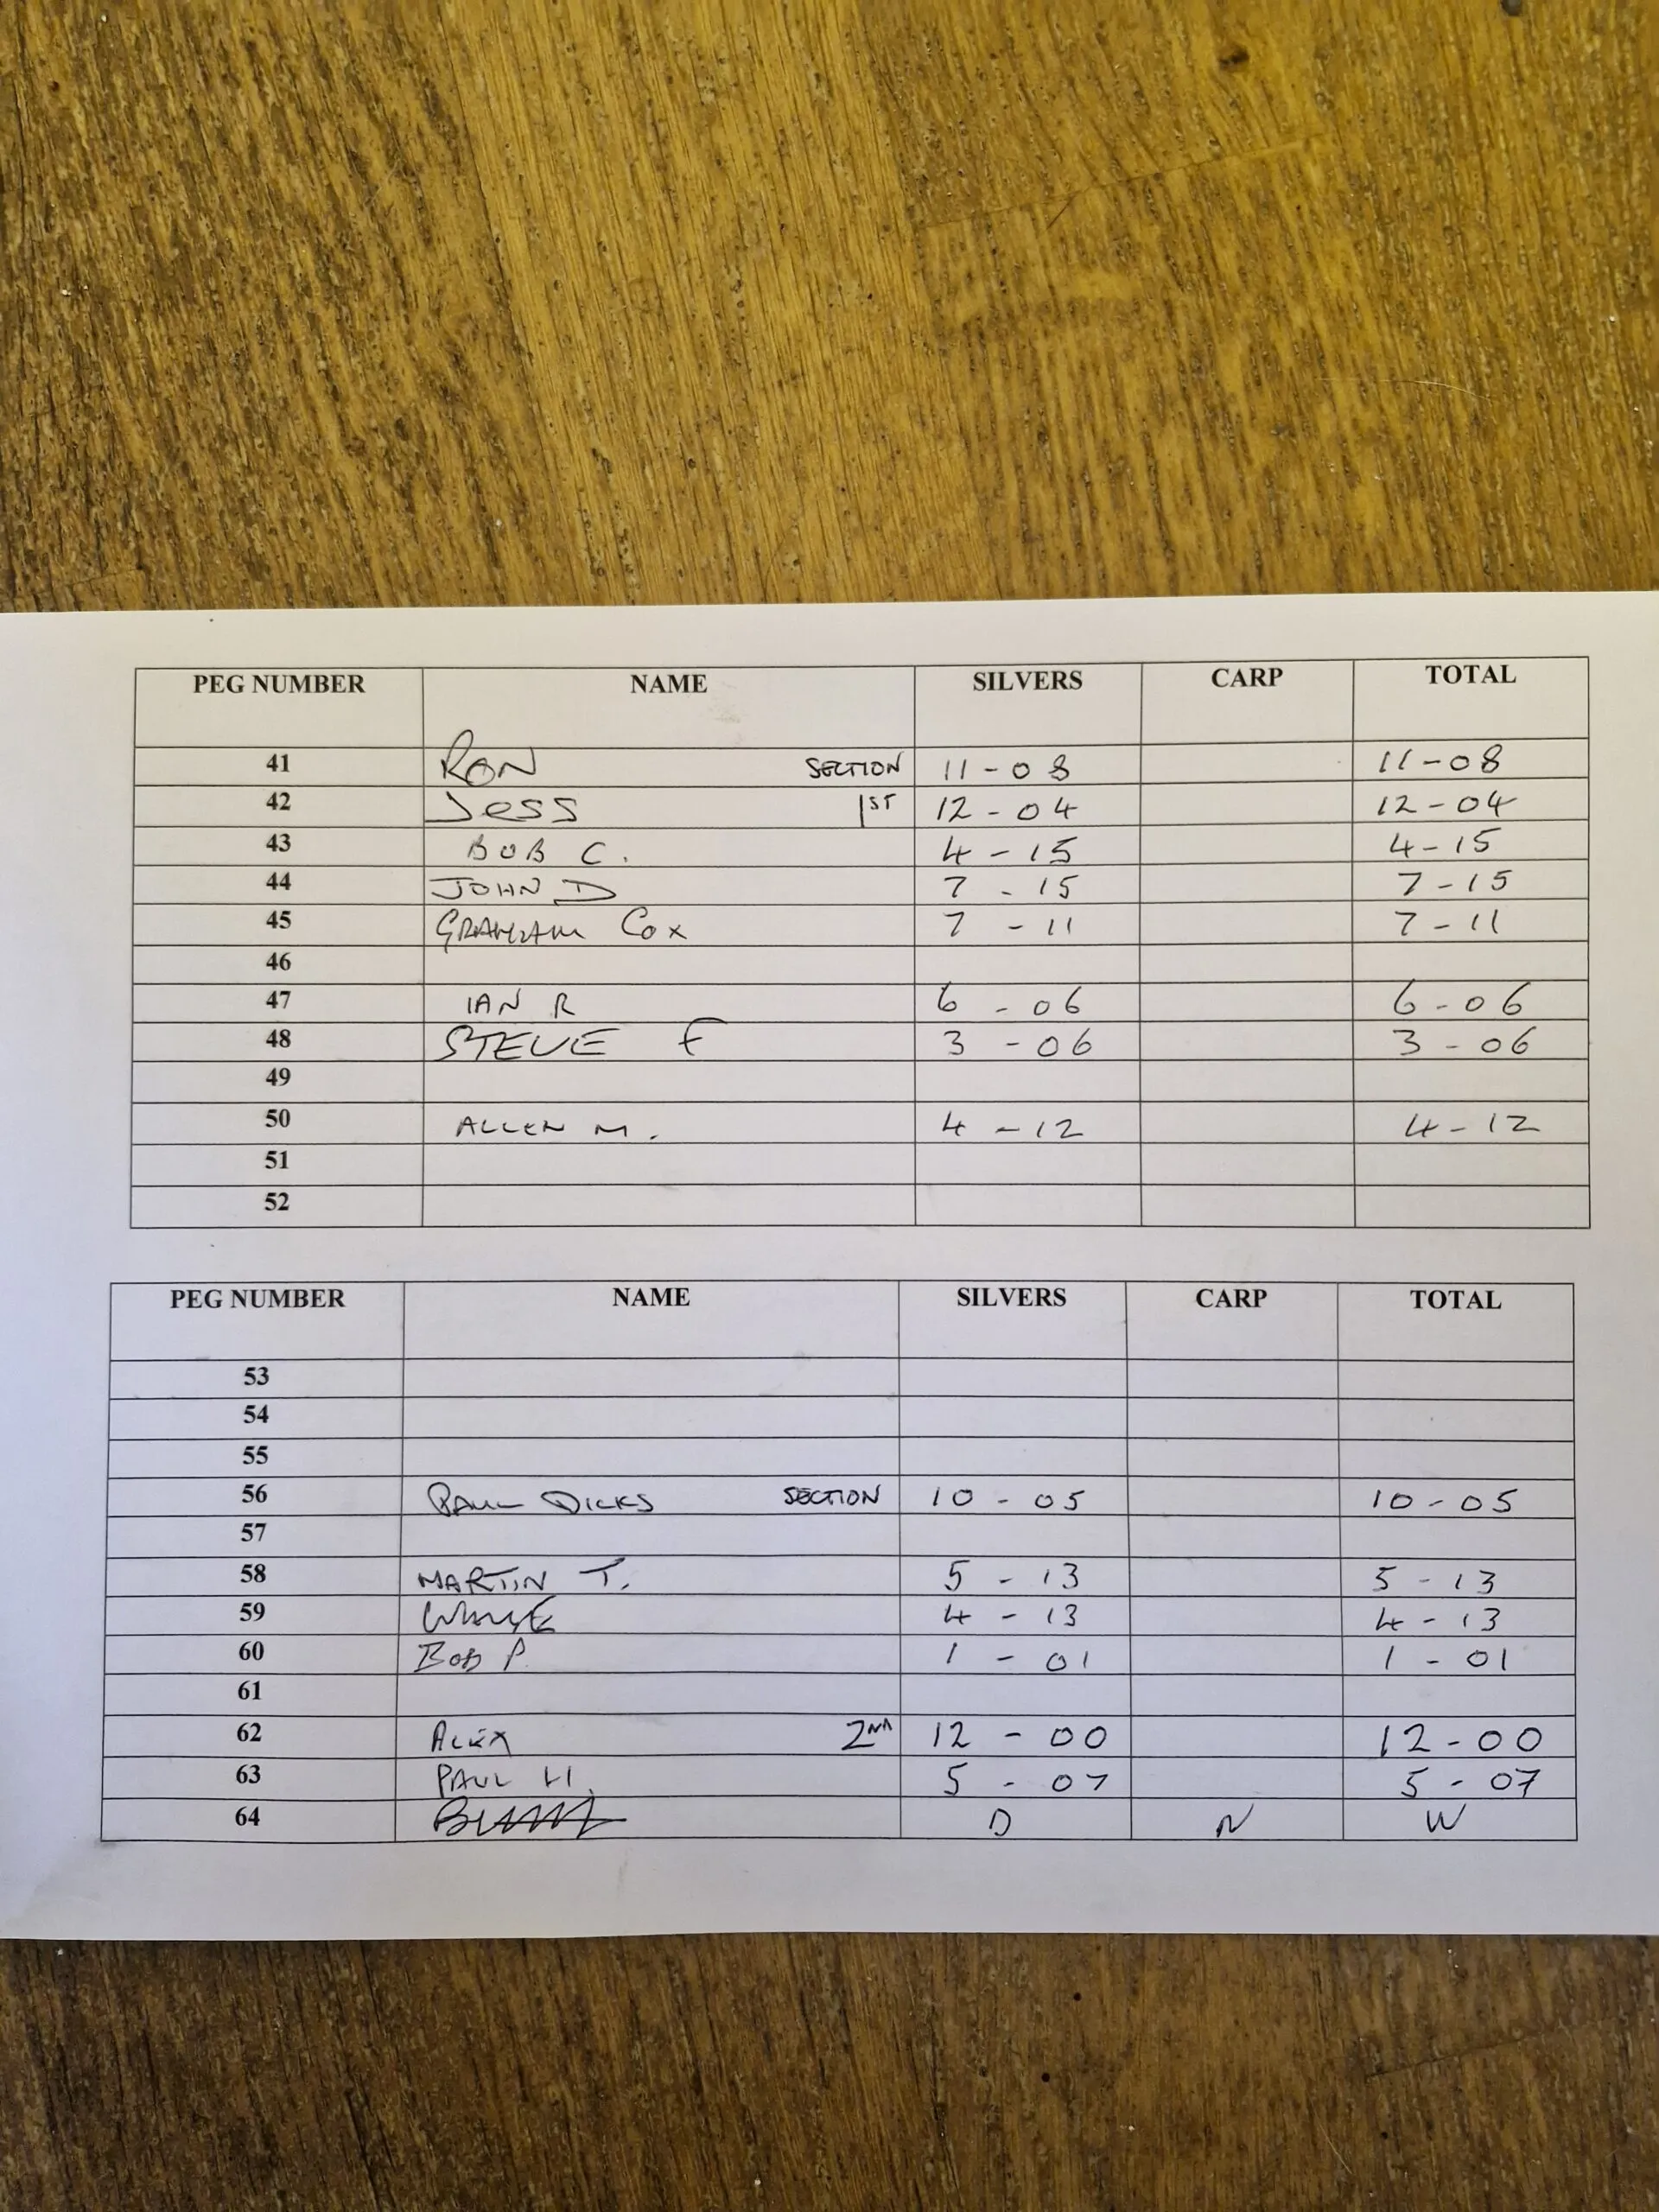 PEG NUMBER NAME SILVERS CARP TOTAL
41 RON SECTION 11-08 11-08
42 Jess 1ST 12-04 12-04
43 BOB C. 4-15 4-15
44 JOHN D 7-15 7-15
45 GRAHAM Cox 7-11 7-11
46
47 IAN R 6-06 6-06
48 STEVE F 3-06 3-06
49
50 ALLEN M. 4-12 4-12
51
52
PEG NUMBER NAME SILVERS CARP TOTAL
53
54
55
56 PAUL DICKS SECTION 10-05 10-05
57
58 MARTIN T. 5-13 5-13
59 4-13 4-13
60 Bob P. 1-01 1-01
61
62 ALEX 2ND 12-00 12-00
63 PAUL H. 5-07 5-07
64 D N W